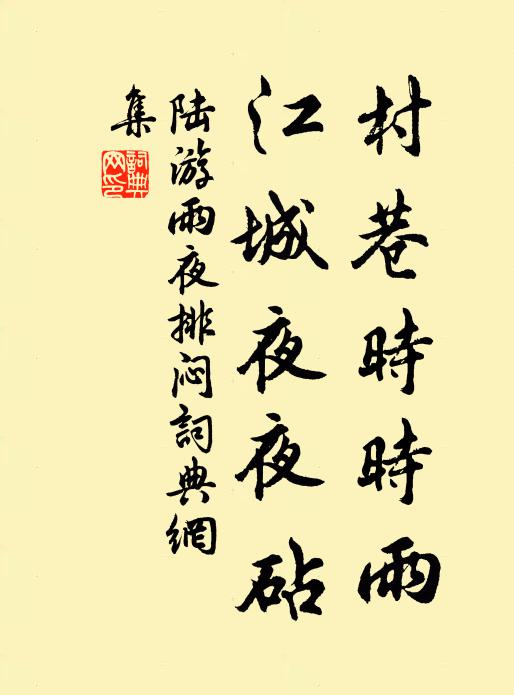 村巷時時雨
江城夜夜砧
陆游雨夜排闷詞典網
集
詞典
网印